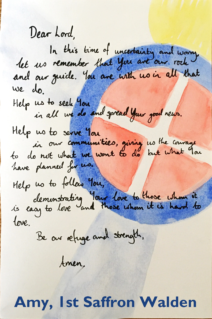 Dear Lord,
In this time of uncertainty and worry,
let us remember that You are our rock
and our guide. You are with us in all that
we do.
Help us to seek You
in all we do and spread Your good news.
Help us to serve You
in our communities, giving us the courage
to do not what we want to do but what You
have planned for us.
Help us to follow You,
demonstrating Your love to those whom it
is easy to love and those whom it is hard to
love.
Be our refuge and strength,
Amen.
Amy, 1st Saffron Walden